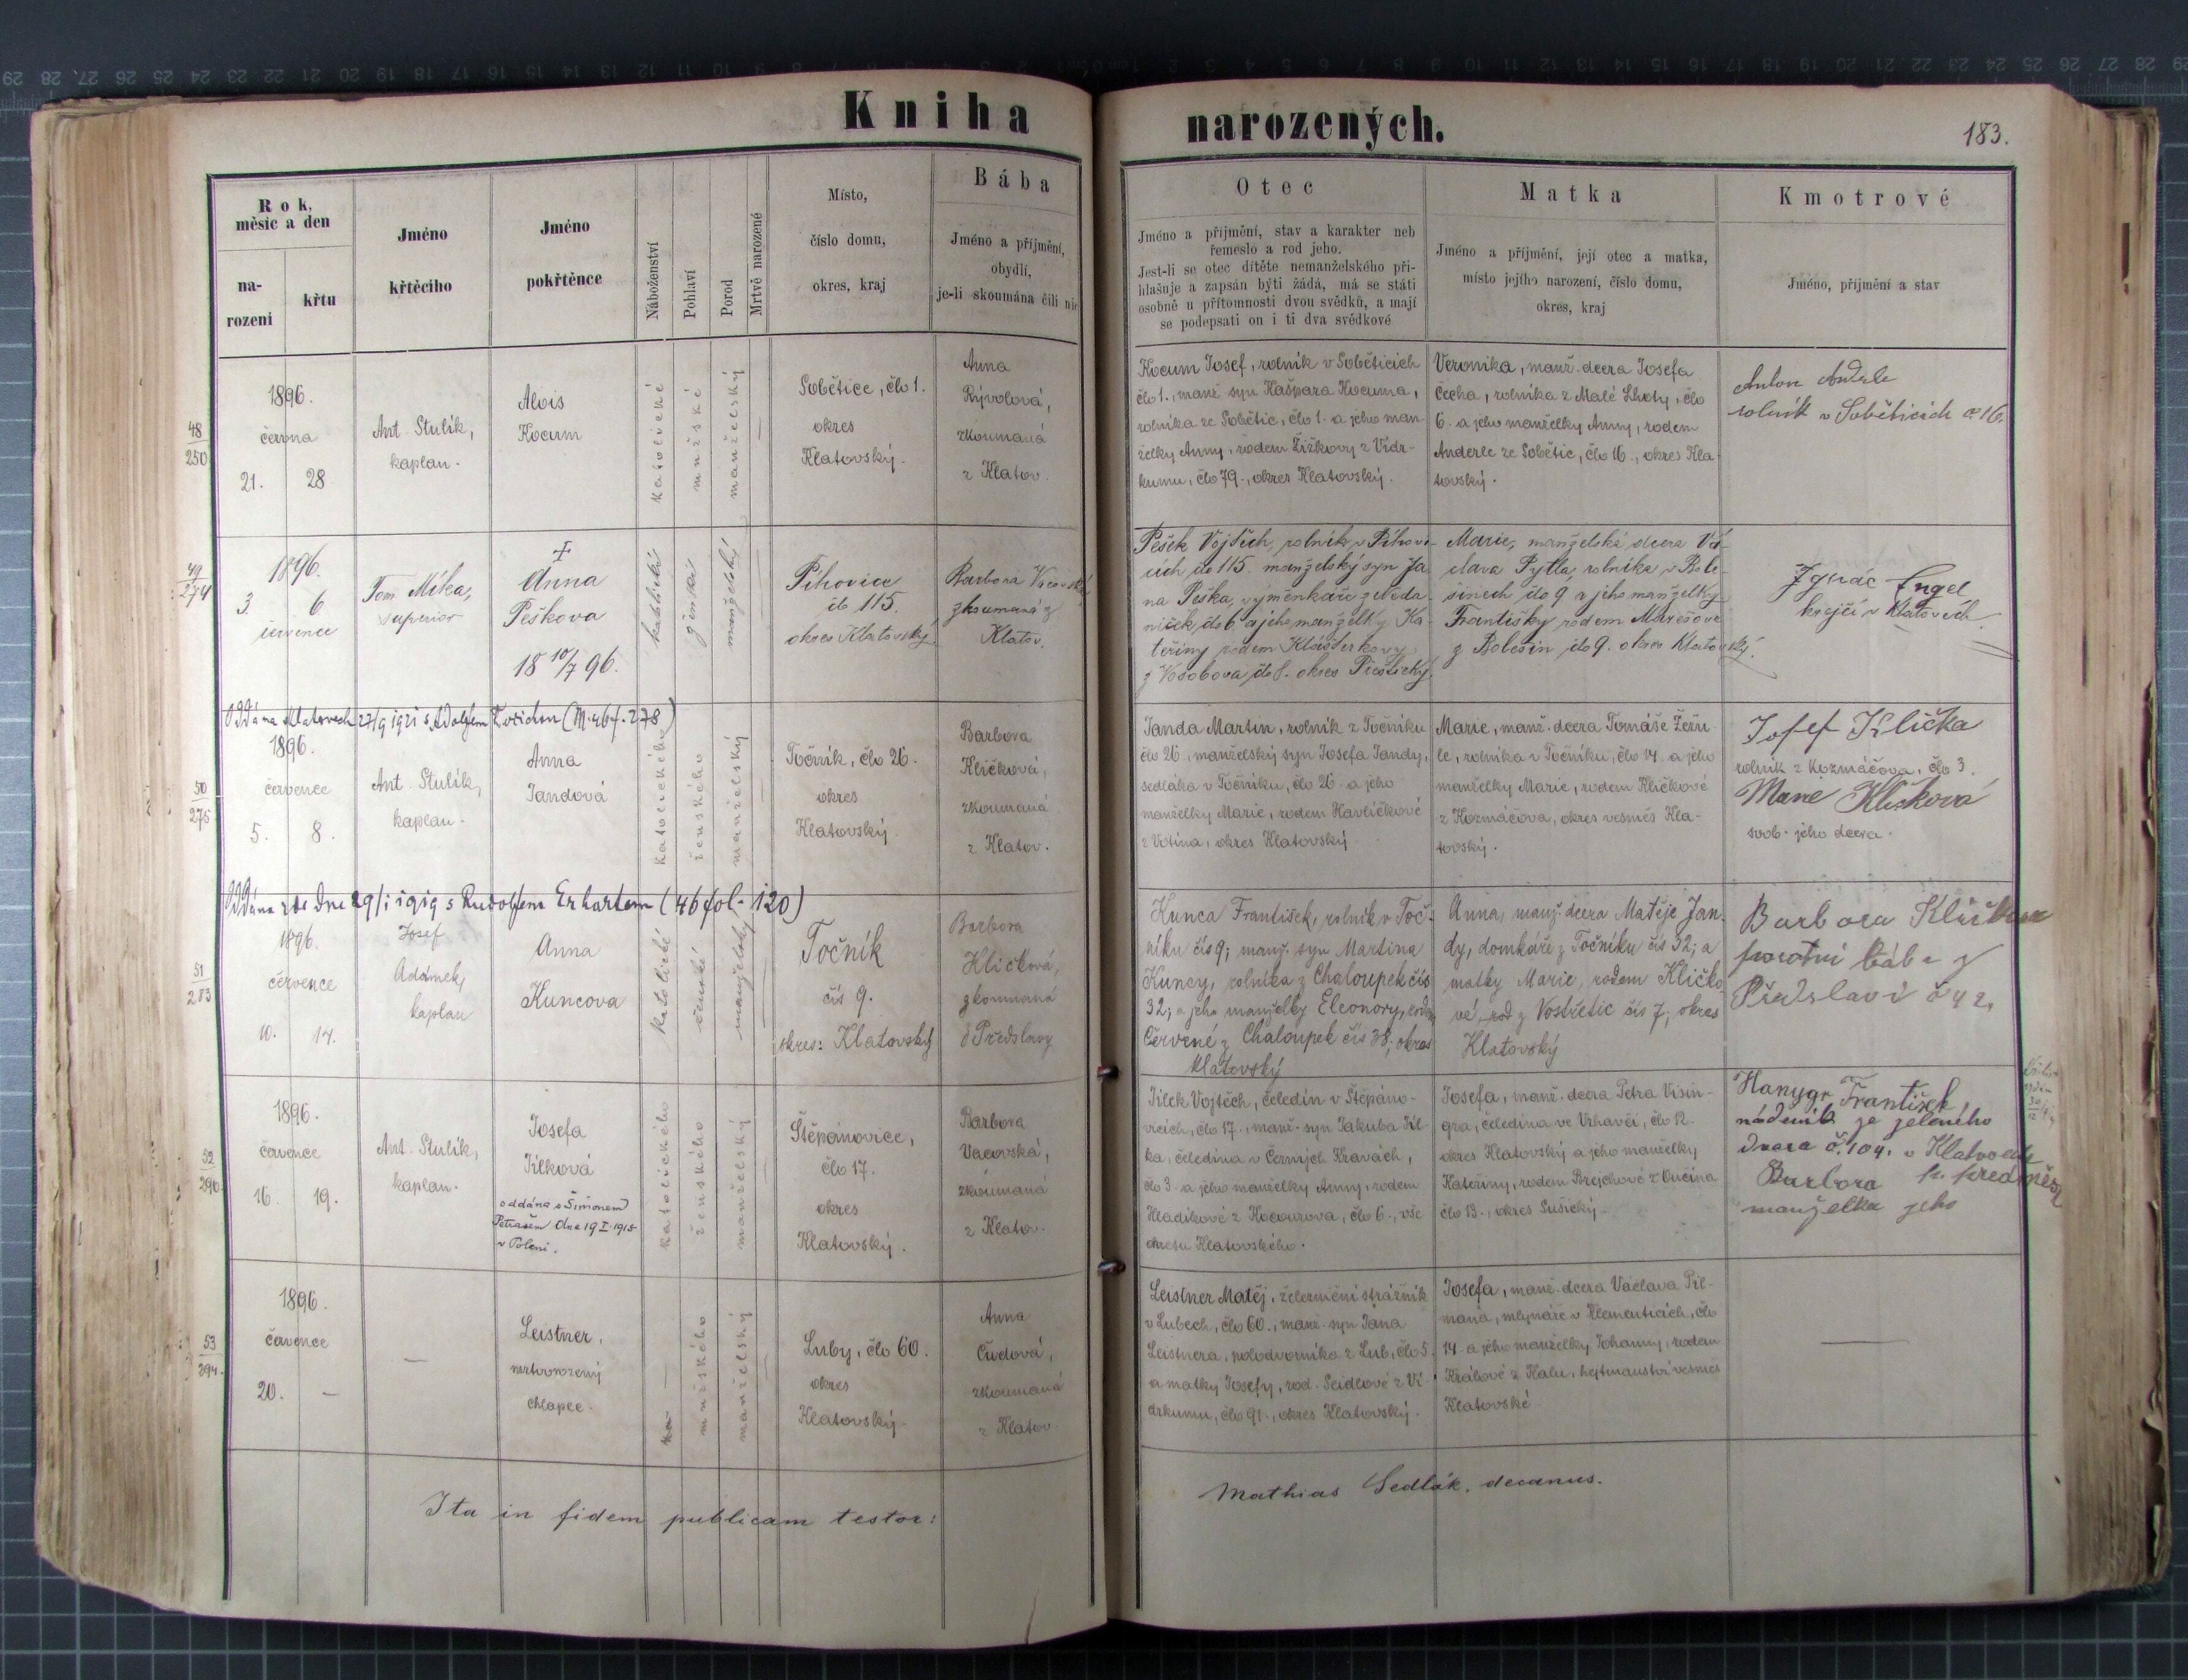 Kniha
narozených.
183.
Rok,
měsíc a den
na-
rozeni
křtu
Jméno
křtěcího
Jméno
pokřtěnce
Náboženství
Pohlaví
Porod
Mrtvě narozené
Místo,
číslo domu,
okres, kraj
Bába
Jméno a příjmění,
obydlí,
je-li skoumána čili nic
Otec
Jméno a příjmění, stav a karakter neb
řemeslo a rod jeho.
Jest-li se otec dítěte nemanželského při-
hlašuje a zapsán býti žádá, má se státi
osobně u přítomnosti dvou svědků, a mají
se podepsati on i ti dva svědkové
Matka
Jméno a příjmění, její otec a matka,
místo jejího narození, číslo domu,
okres, kraj
Kmotrové
Jméno, příjmění a stav
48
250
1896.
června
21. 28
Ant. Stulík,
kaplan.
Alois
Kocum
katolické
mužské
manželský
Sobětice, člo 1.
okres
Klatovský.
Anna
Rývolová,
zkoumaná
z Klatov.
Kocum Josef, rolník v Soběticích
člo 1., manž. syn Kašpara Kocuma,
rolníka ze Sobětic, člo 1. a jeho man-
želky Anny, rodem Žižkovy z Vidr-
kumu, člo 79., okres Klatovský.
Veronika, manž. dcera Josefa
Čecha, rolníka z Malé Lhoty, člo
6. a jeho manželky Anny, rodem
Anderle ze Sobětic, člo 16., okres Kla-
tovský.
Anton Anderle
rolník v Soběticích č 16.
49
274
1896.
3. 6
července
Tom. Míka,
superior
Anna
Peškova
18 10/7 96.
katolické
ženské
manželský
Pihovice
čís 115.
okres Klatovský
Barbora
zkoumaná z
Klatov.
Pešek Vojtěch, rolník v Pihovi-
cích čís 115. manželský syn Ja-
na Peška, výměnkáře z Neda-
niček, čís 6 a jeho manželky Ka-
teřiny rodem Klášterkovy
z Vosobova, čís 8. okres Přeštický
Marie, manželská dcera Vá-
clava Pytla, rolníka v Bole-
šinech čís 9 a jeho manželky
Františky rodem Marešove
z Bolešin čís 9. okres Klatovský.
Ignác Engel
krejčí v Klatovech.
50
275
1896.
července
5. 8.
Ant. Stulík,
kaplan.
Anna
Jandová
katolického
ženského
manželský
Točník, člo 26.
okres
Klatovský.
Barbora
Kličková,
zkoumaná
z Klatov.
Janda Martin, rolník z Točníku
člo 26., manželský syn Josefa Jandy,
sedláka v Točníku, člo 26. a jeho
manželky Marie, rodem Havlíčkové
z Votína, okres Klatovský
Marie, manž. dcera Tomáše
le, rolníka v Točníku, člo 14. a jeho
manželky Marie, rodem Kličkové
z Kozmáčova, okres vesměs Kla-
tovský.
Josef Klička
rolník z Kozmáčova, člo 3.
Marie Kličková
svob. jeho dcera.
Oddána dne 29/1 1919 s Rudolfem Erhartem (46 fol. 120)
51
283
1896.
července
10. 14.
Josef
Adámek,
kaplan
Anna
Kuncova
katolické
ženské
manželský
Točník
čís 9.
okres: Klatovský
Barbora
Kličková,
zkoumaná
z Předslavy
Kunca František, rolník v Toč-
níku čís 9; manž. syn Martina
Kuncy, rolníka z Chaloupek čís
32; a jeho manželky Eleonory, rodem
Červené z Chaloupek čís 38, okres
Klatovský
Anna, manž. dcera Matěje Jan-
dy, domkáře z Točníku čís 32; a
matky Marie, rodem Kličko-
vé, rod z Vostřetic čís 7, okres
Klatovský
Barbora Kličkova
porotní bába z
Předslavi č 42,
52
290
1896.
července
16. 19.
Ant. Stulík,
kaplan.
Josefa
Jílková
oddána s Šimonem
Petrašem dne 19 I. 1915
v Poleni.
katolického
ženského
manželský
Štěpánovice,
člo 17.
okres
Klatovský.
Barbora
Vacovská,
zkoumaná
z Klatov.
Jílek Vojtěch, čeledín v Štěpáno-
vicích, člo 17., manž. syn Jakuba Jíl-
ka, čeledína v Černých Kravách,
člo 3. a jeho manželky Anny, rodem
Hladíkové z Kocourova, člo 6., vše
okresu Klatovského.
Josefa, manž. dcera Petra Visin-
gra, čeledína ve Vrhavči, člo 12.
okres Klatovský a jeho manželky
Kateřiny, rodem Brejchové z
člo 13., okres Sušický.
Hanygr František,
nádeník ze zeleného
dvora č. 104. v Klatovech
Barbora
manželka jeho
53
294.
1896.
července
20. —
—
Leistner,
mrtvorozený
chlapec.
mužského
manželský
Luby, člo 60.
okres
Klatovský.
Anna
Čudová,
zkoumaná
z Klatov.
Leistner Matěj, železniční strážník
v Lubech, člo 60., manž. syn Jana
Leistnera, polodvorníka z Lub, člo 5.
a matky Josefy, rod. Seidlové z Vi-
drkumu, člo 91., okres Klatovský.
Josefa, manž. dcera Václava Pil-
mana, mlynáře v Klementicích, člo
14. a jeho manželky Johanny, rodem
Králové z Kalu, hejtmanství vesměs
Klatovské.
Ita in fidem publicam testor:
Mathias Sedlák, decanus.